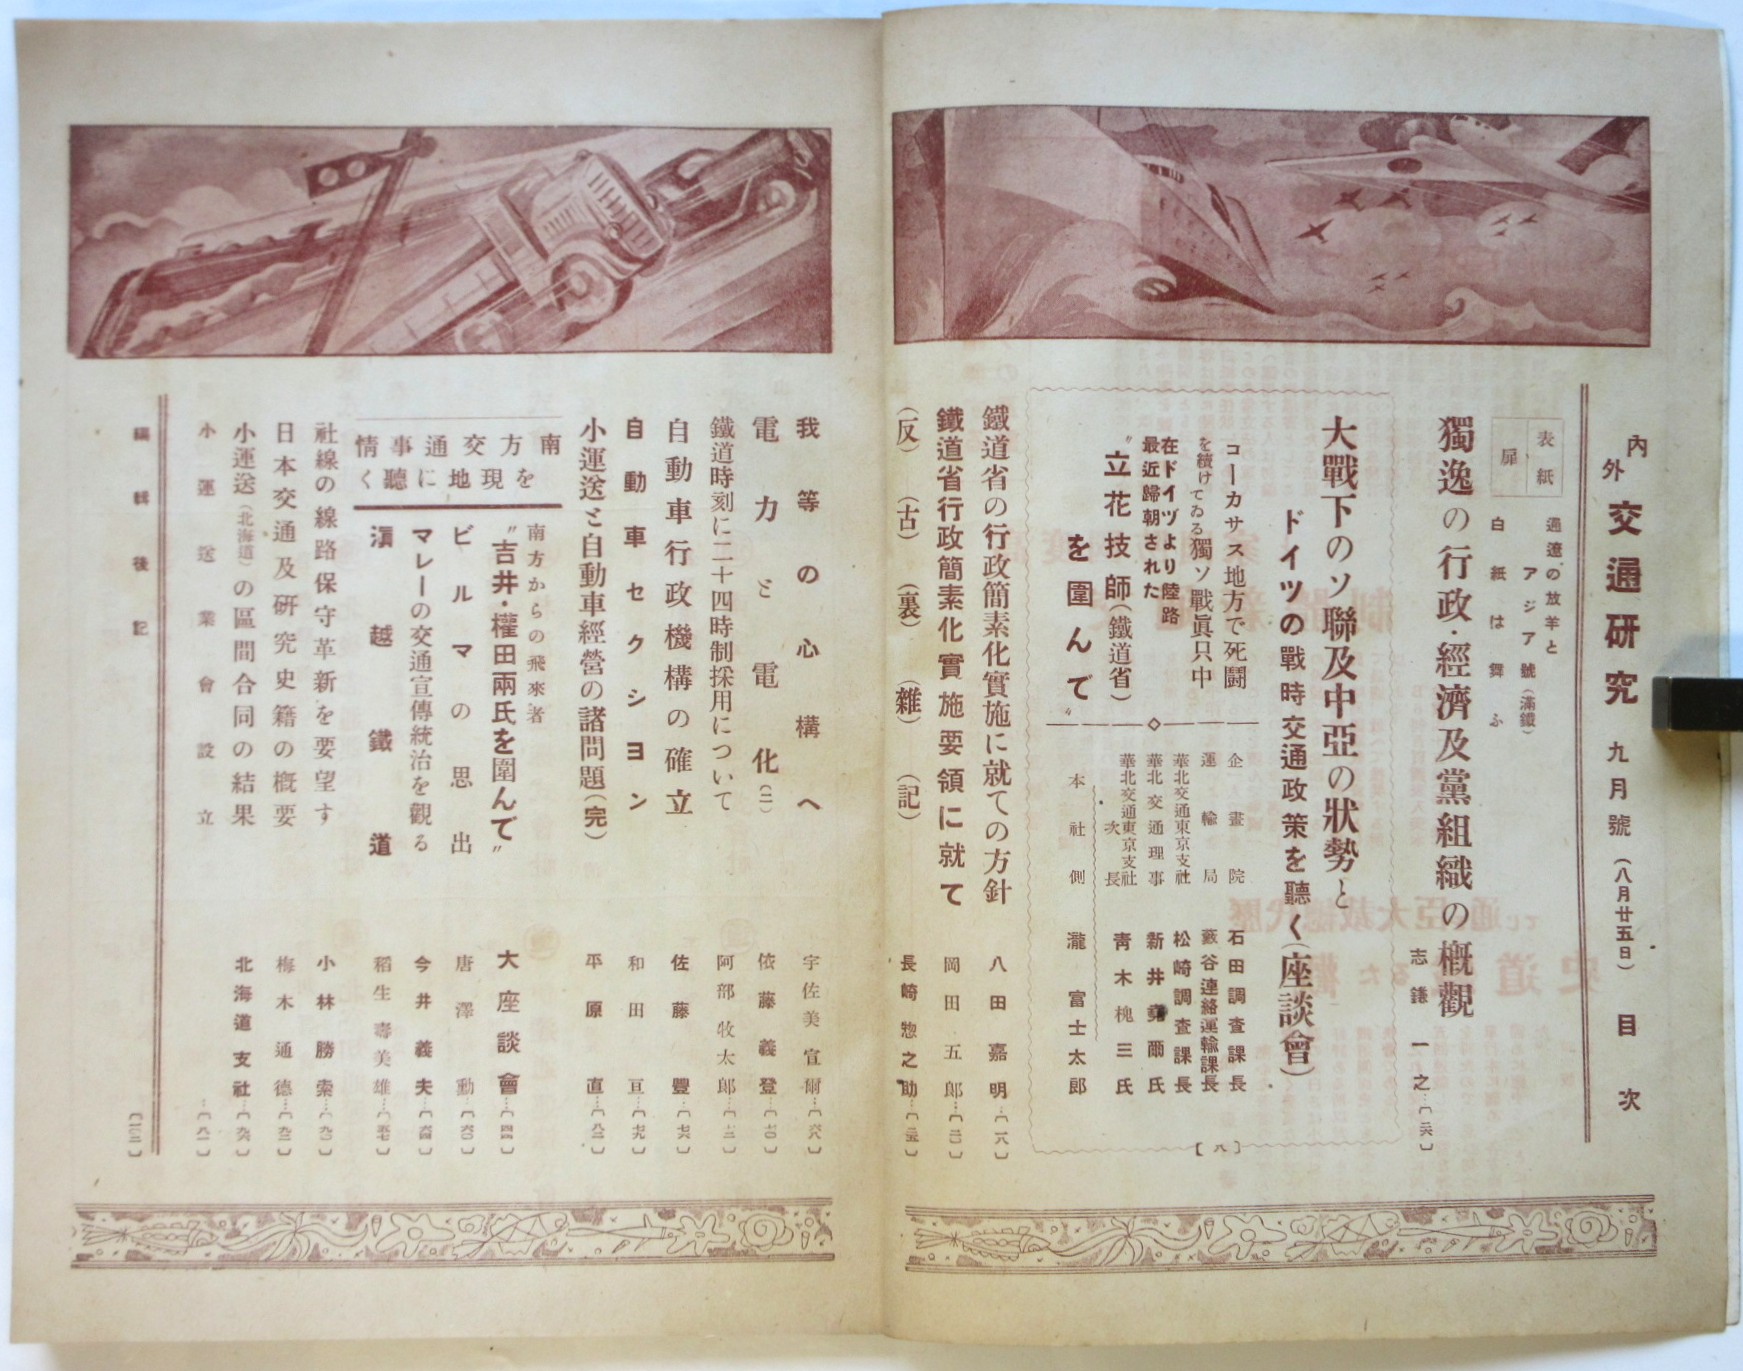 內外 交通研究 九月號 (八月廿五日) 目次
表紙 通遼の放羊とアジア號(滿鐵)
扉 白紙は舞ふ
獨逸の行政・經濟及黨組織の槪觀 志鎌一之…〔二六〕
大戰下のソ聯及中亞の狀勢と
ドイツの戰時交通政策を聽く(座談會)
コーカサス地方で死鬪
を續けてゐる獨ソ戰眞只中
在ドイツより陸路
最近歸朝された
〝立花技師(鐵道省)
を圍んで〟
企畫院 石田調査課長
運輸局 藪谷連絡運輸課長
華北交通東京支社 松崎調査課長
華北交通理事 新井堯爾氏
華北交通東京支社次長 靑木槐三氏
本社側 瀧富士太郎
〔八〕
鐵道省の行政簡素化實施に就ての方針 八田嘉明…〔一八〕
鐵道省行政簡素化實施要領に就て 岡田五郞…〔二〇〕
(反)(古)(裏)(雜)(記) 長崎惣之助…〔二五〕
我等の心構へ 宇佐美宣爾…〔六八〕
電力と電化(二) 依藤義登…〔七〇〕
鐵道時刻に二十四時制採用について 阿部牧太郞…〔七三〕
自動車行政機構の確立 佐藤豐…〔七六〕
自動車セクシヨン 和田亘…〔七九〕
小運送と自動車經營の諸問題(完) 平原直…〔八二〕
南方交通事情
を現地に聽く
南方からの飛來者
〝吉井・權田兩氏を圍んで〟 大座談會…〔四四〕
ビルマの思出 唐澤勳…〔六〇〕
マレーの交通宣傳統治を觀る 今井義夫…〔六四〕
滇越鐵道 稻生壽美雄…〔五七〕
社線の線路保守革新を要望す 小林勝索…〔九〇〕
日本交通及硏究史籍の槪要 梅木通德…〔九三〕
小運送(北海道)の區間合同の結果 北海道支社…〔九六〕
小運送業會設立…〔八一〕
編輯後記